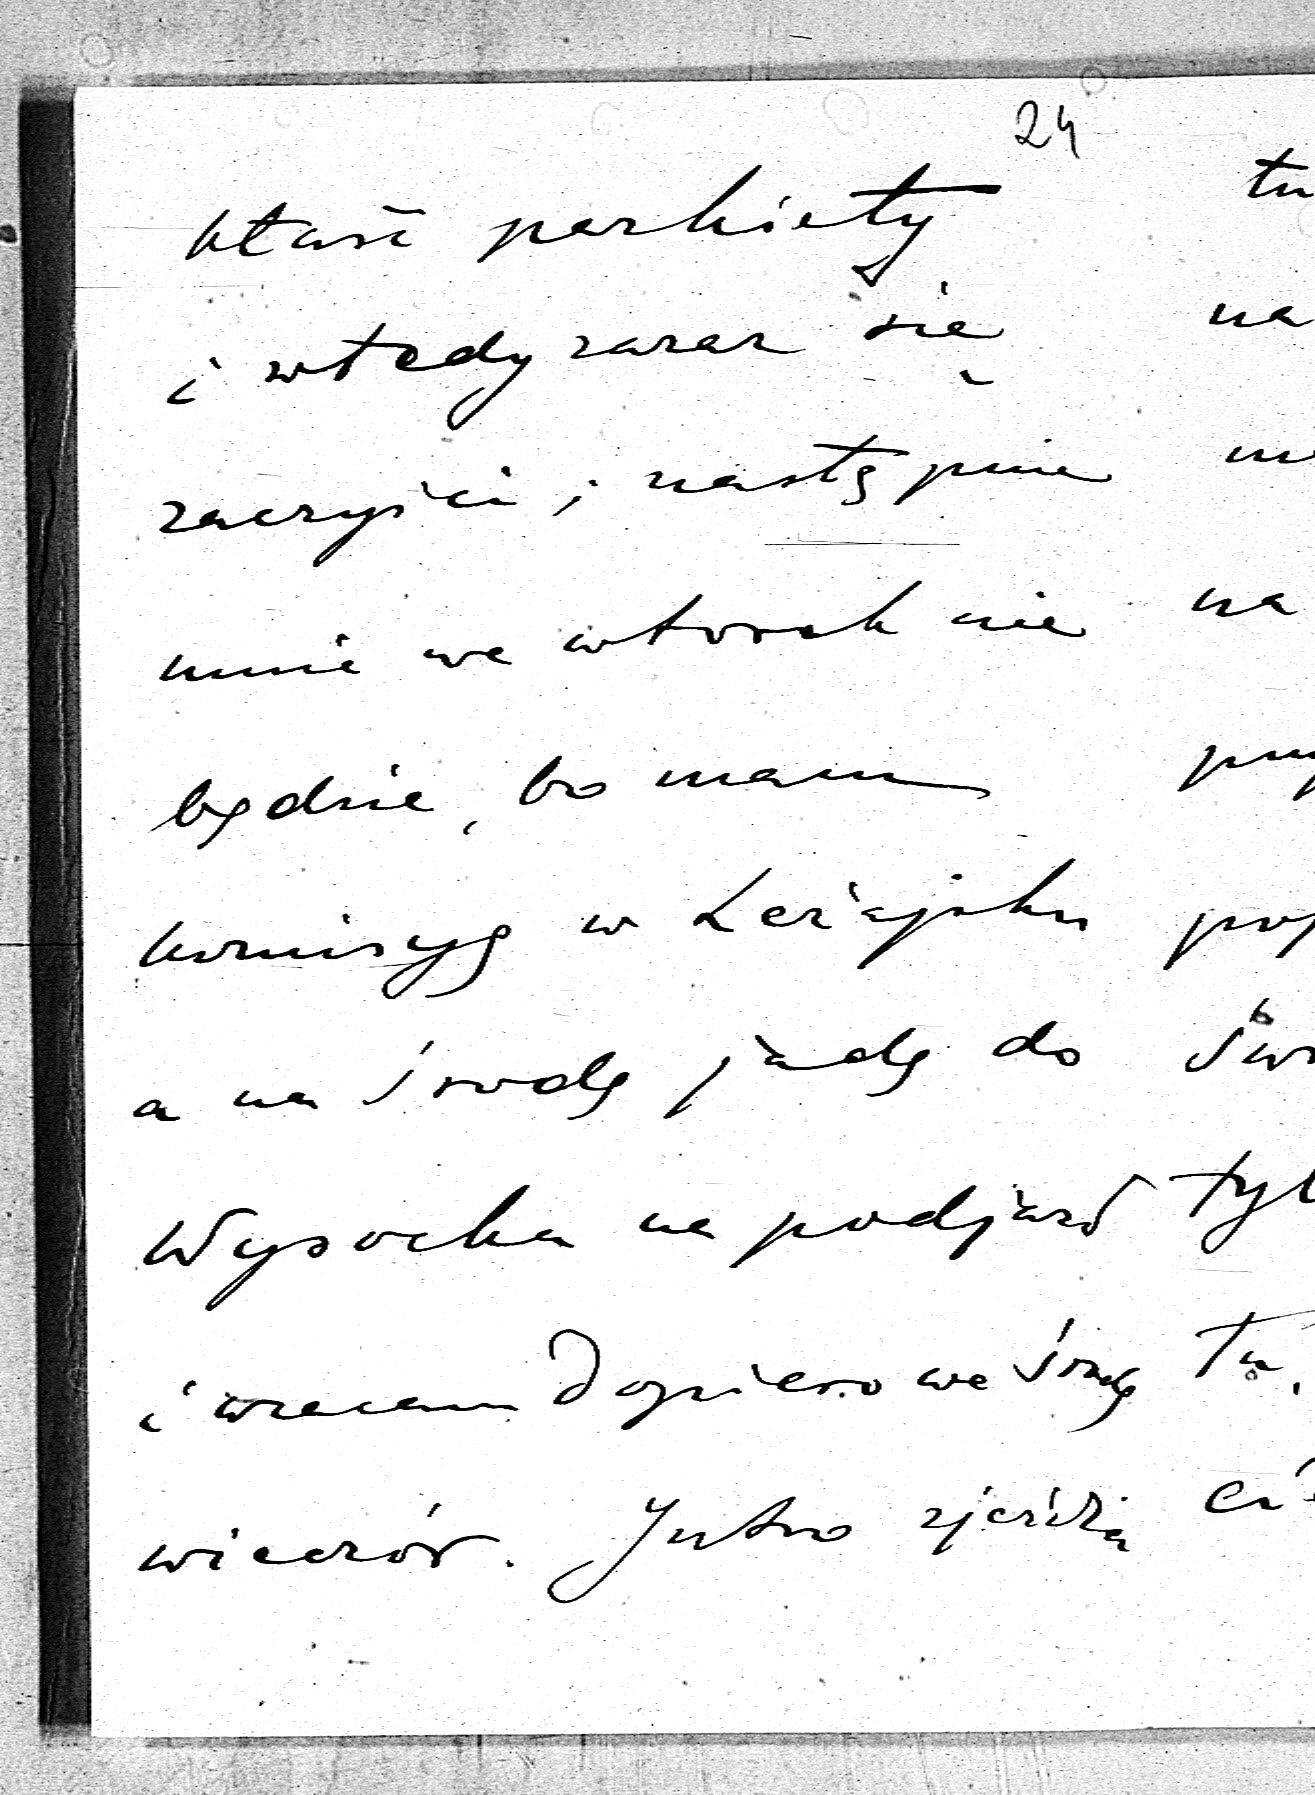 24
kłaść parkiety
i wtedy zaraz się
zaczyści; następnie
mnie we wtorek nie
będzie, bo mam
komisyę w Leżajsku
a na środę jadę do
Wysocka na podjazd
i wracam dopiero we środę
wieczór. Jutro zjeżdżą
tu
na
na
Tu